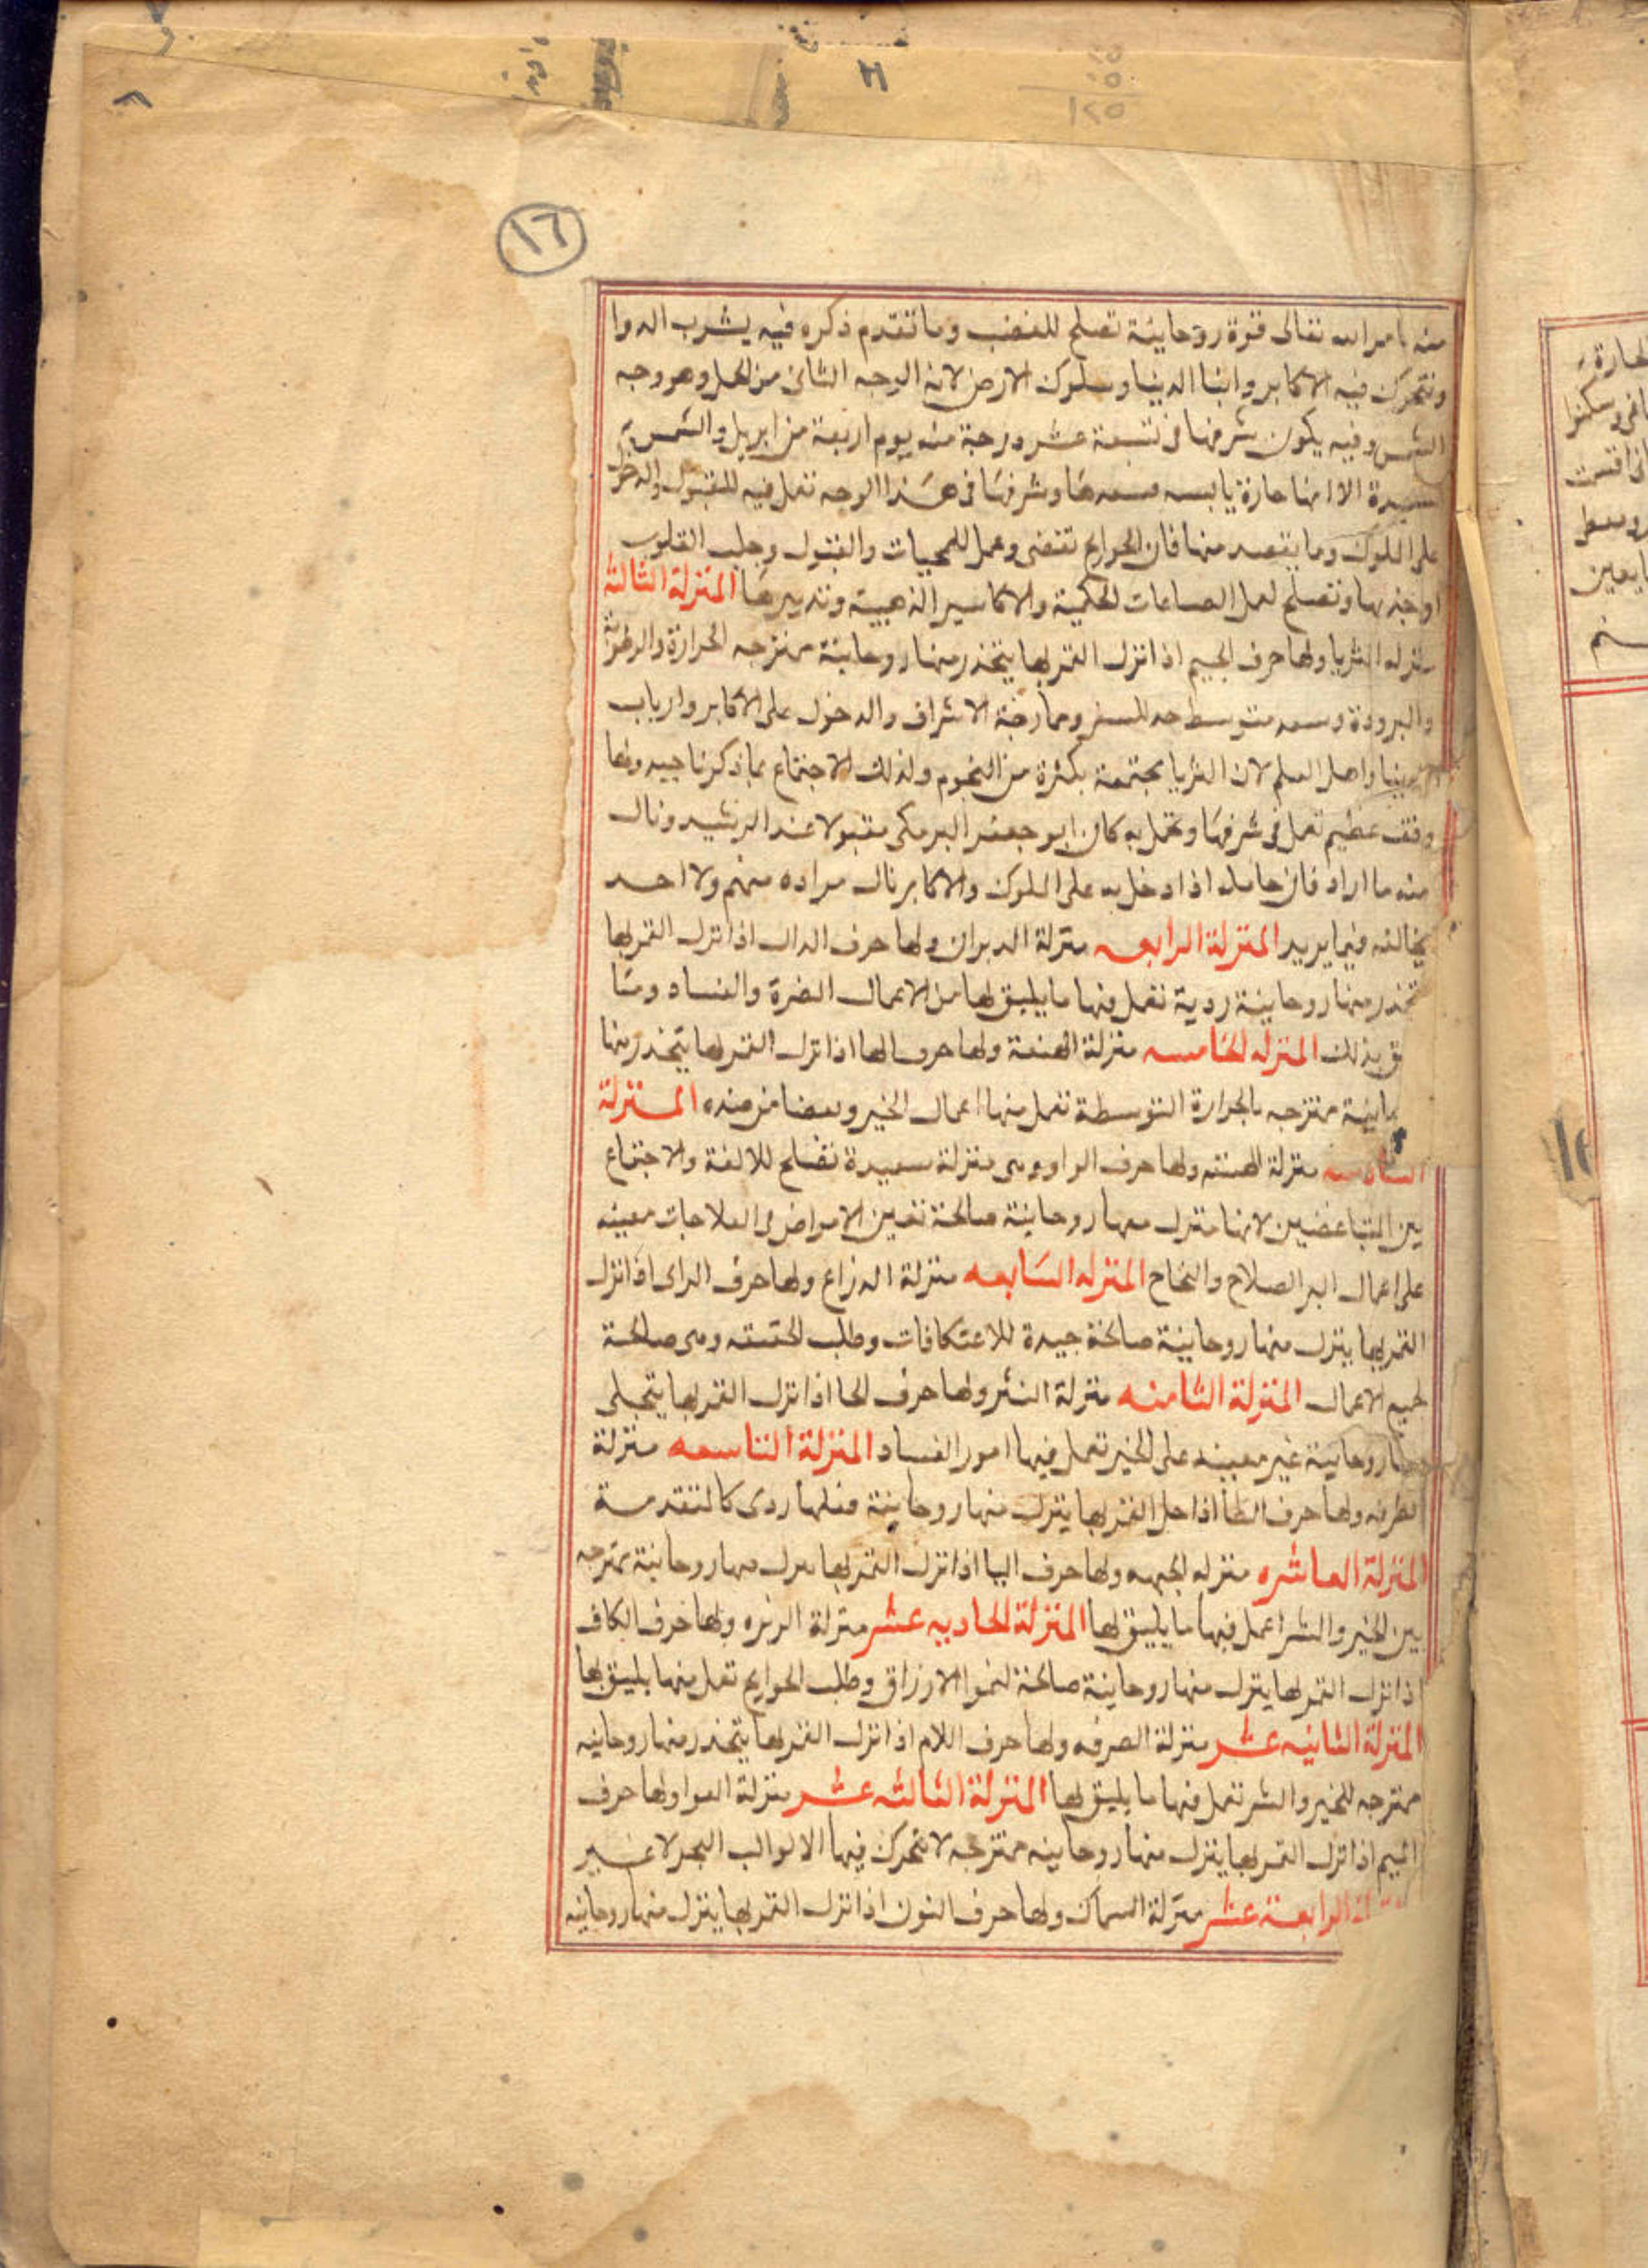 ١٦
منه بامر الله تعالى قوة روحانية تصلح للغضب وما تقدم ذكره فيه يشرب الدوا
وتتحرك فيه الاكابر وابنا الدنيا وملوك الارض لانه الوجه الثانى من الحمل وهو وجه
الشمس وفيه يكون شرفها فى تسعة عشر درجة منه يوم اربعة من ابريل والشمس
سعيدة الا انها حارة يابسه فسعدها وشرفها فى هذا الوجه تعمل فيه للقبول والدخول
على الملوك وما يقصد منها فان الحوايج تقضى وعمل للمحبات والقبول وجلب القلوب
وتصلح لعمل الصناعات الحكمية والاكاسير الذهبية وتدبيرها المنزلة الثالثة
منزله الثريا ولها حرف الجيم اذا نزل القمر بها يتحدر منها روحانية ممتزجه الحرارة والرطوبة
والبرودة وسعد متوسط جد للسفر وممازجة الاشراف والدخول على الاكابر وارباب
واهل العلم لان الثريا مجتمعة بكثرة من النجوم ولذلك الاجتماع بما ذكرنا جيد ولها
وفق عظيم تعمل فى شرفها وتحمل به كان ابو جعفر البرمكى مقبولا عند الرشيد ونال
منه ما اراد فان حامله اذا دخل به على الملوك والاكابر نال مراده منهم ولا احد
يخالفه فيما يريد المنزلة الرابعه منزلة الدبران ولها حرف الدال اذا نزل القمر بها
تحدر منها روحانية ردية تعمل فيها ما يليق لها من الاعمال المضرة والفساد وما
بذلك المنزله الخامسه منزلة الهقعة ولها حرف الها اذا نزل القمر بها يتحدر منها
ممتزجه بالحرارة المتوسطة تعمل منها اعمال الخير وبعضا من ضده المنزلة
السادسه منزلة الهنعه ولها حرف الواو وهى منزلة سعيدة تصلح للالفة والاجتماع
بين المتباغضين لانها متنزل منها روحانية صالحة تعين الامراض فى العلاجات معينه
على اعمال البر الصلاح والنجاح المنزله السابعه منزلة الدزاع ولها حرف الزاى اذا نزل
القمر بها ينزل منها روحانية صالحة جيدة للاعتكافات وطلب وهى صالحة
لجميع الاعمال المنزلة الثامنه منزلة النثره ولها حرف الحا اذا نزل القمر بها يتجلى
روحانية غير معينه على الخير تعمل فيها امور الفساد المنزلة التاسعه منزلة
الطرفه ولها حرف الطا اذا حل القمر بها ينزل منها روحانية فعلها ردى كالمتقدمة
المنزلة العاشره منزله الجبهه ولها حرف اليا اذا نزل القمر بها ينزل منها روحانية ممتزجه
بين الخير والشر اعمل فيها ما يليق لها المنزلة الحاديه عشر منزلة الزبره ولها حرف الكاف
اذا نزل القمر بها ينزل منها روحانية صالحة لنموا الارزاق وطلب الحوايج تعمل منها يليق بها
المنزلة الثانيه عشر منزلة الصرفه ولها حرف اللام اذا نزل القمر بها يتحدر منها روحانيه
ممتزجه للخير والشر تعمل فيها ما يليق لها المنزلة الثالثه عشر منزلة العوا ولها حرف
الميم اذا نزل القمر بها ينزل منها روحانيه ممتزجه لا تتحرك فيها الا لوالب البحر لا غير
الرابعة عشر منزلة السماك ولها حرف النون اذا نزل القمر بها ينزل منها روحانيه